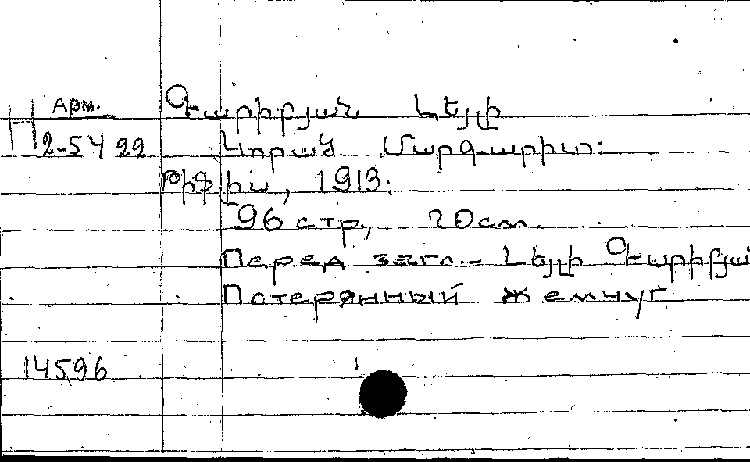 Арм. Գարիբյան Լեյլի
H 2-5422 Կորած Մարգարիտ:
Թիֆլիս, 1913:
96 стр, 20 см.
Перед загл. - Լեյլի Գարիբյան
Потерянный жемчуг
14596